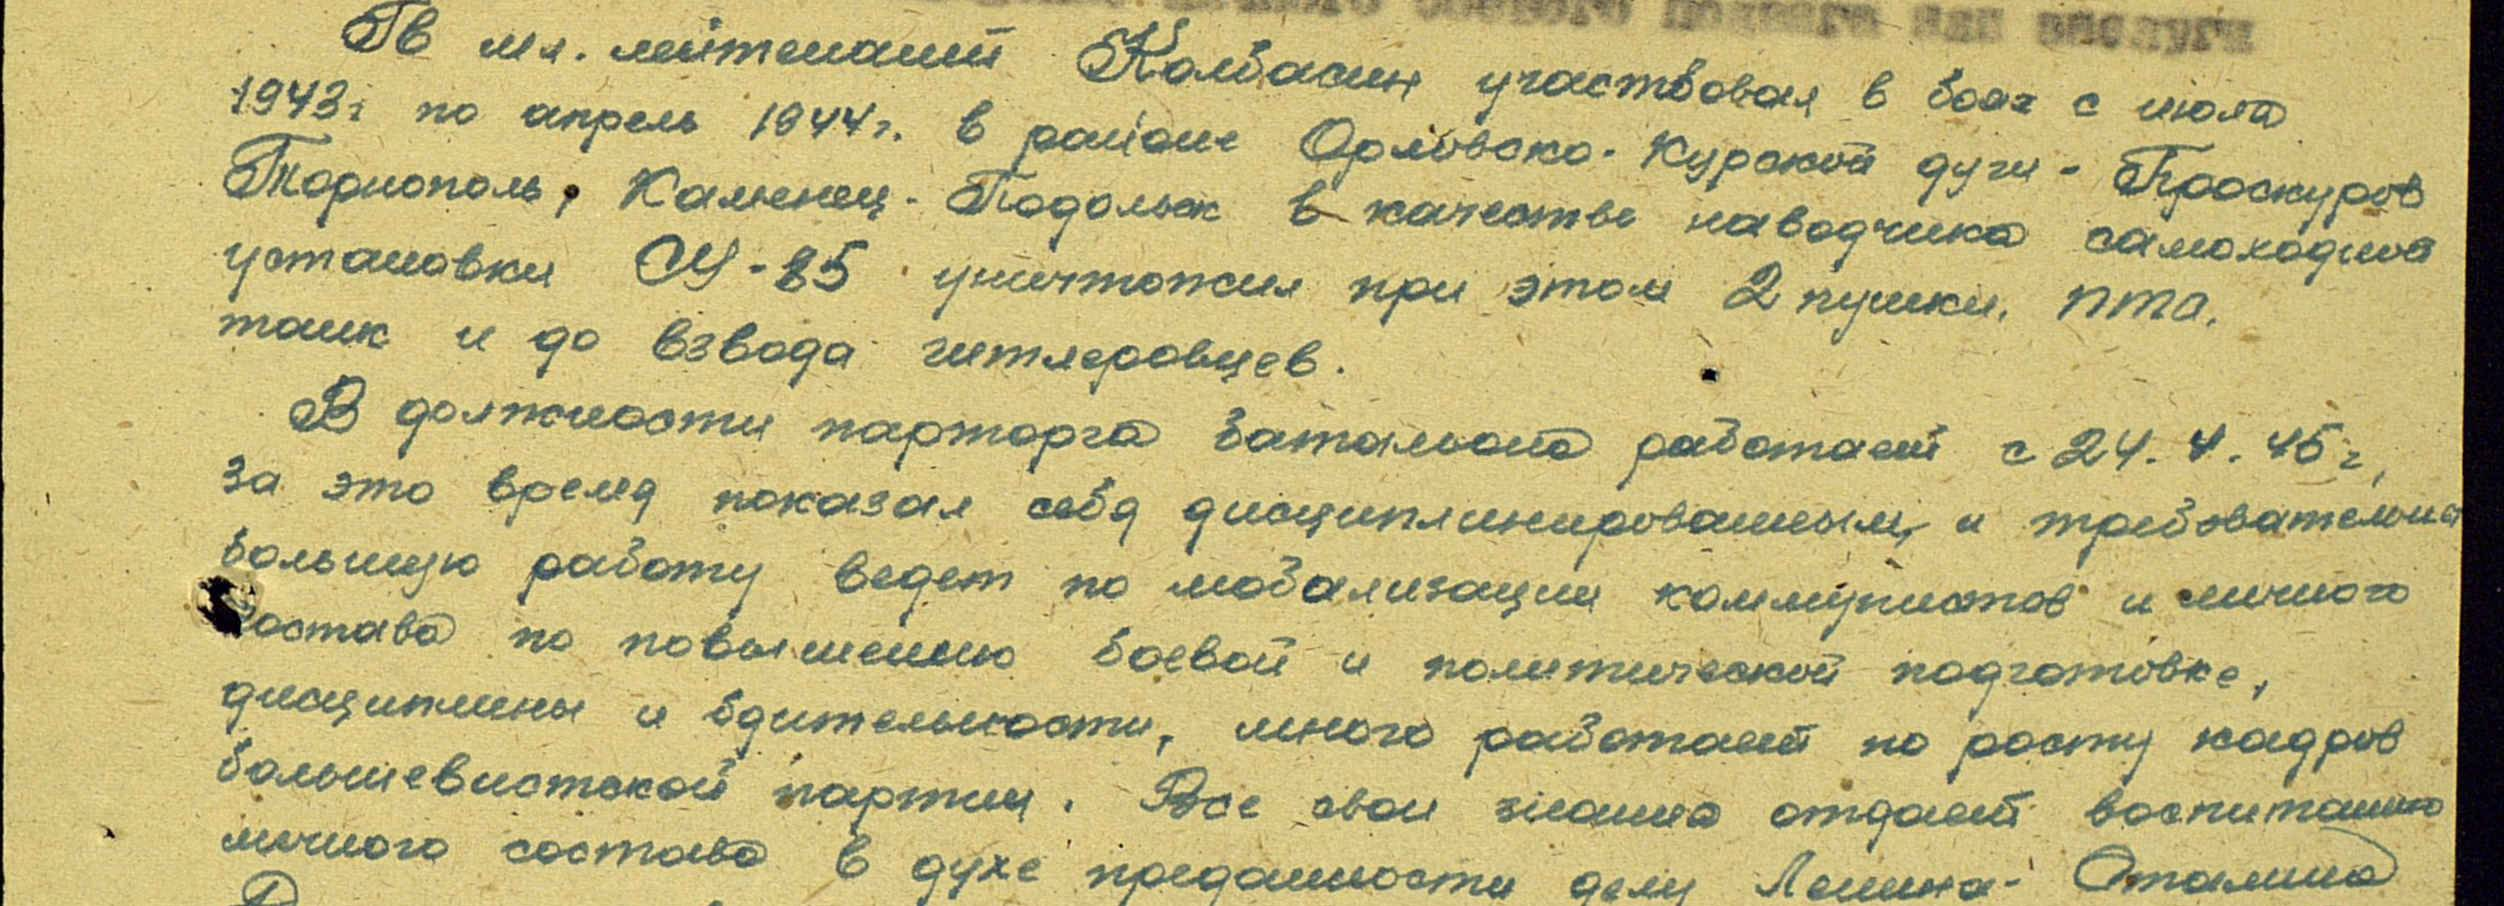 личного боевого подвига или заслуги
Гв мл. лейтенант Колбасин участвовал в боях с июля
1943г по апрель 1944г. в районе Орловско-Курской дуги - Проскуров
Тарнополь, Каменец-Подольск в качестве наводчика самоходной
установки СУ-85 уничтожил при этом 2 пушки, ПТО,
танк и до взвода гитлеровцев.
В должности парторга батальона работает с 24.4.45г,
за это время показал себя дисциплинированным, и требовательным
большую работу ведет по мобализации коммунистов и личного
состава по повышению боевой и политической подготовке,
дисциплины и бдительности, много работает по росту кадров
большевистской партии. Все свои знания отдает воспитанию
личного состава в духе преданности делу Ленина-Сталина